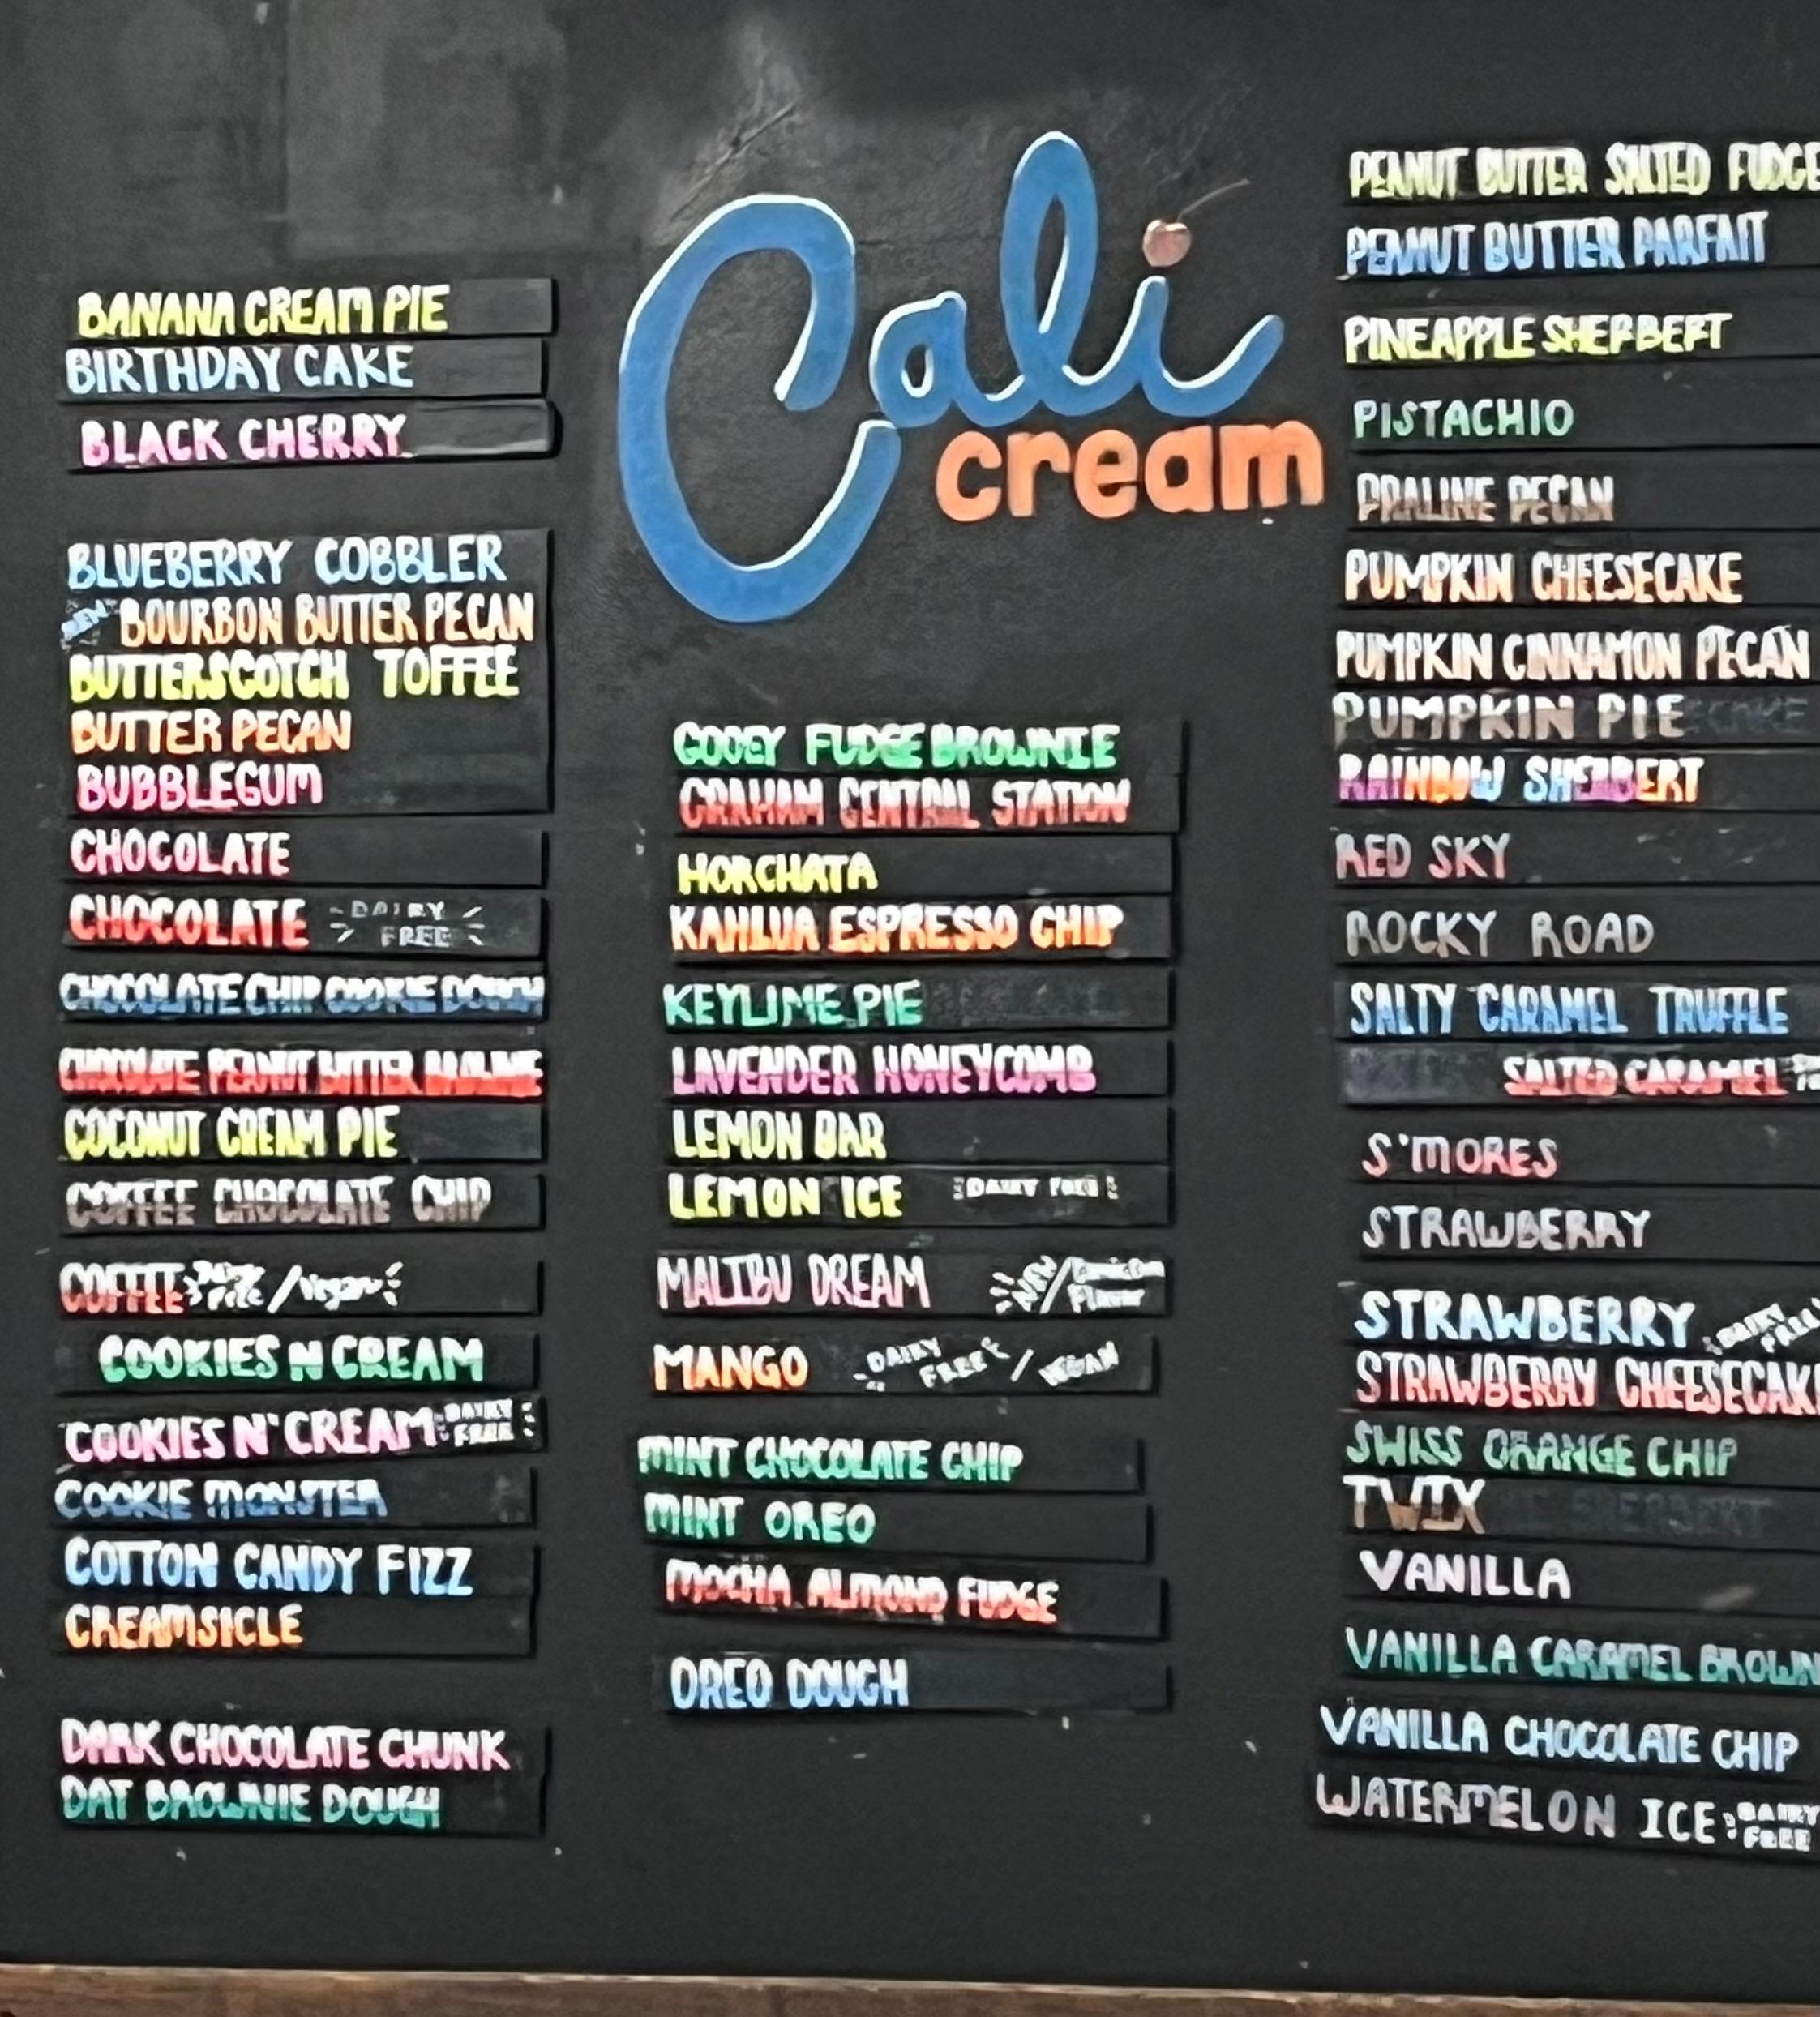 Cali
cream
BANANA CREAM PIE
BIRTHDAY CAKE
BLACK CHERRY
BLUEBERRY COBBLER
NEW BOURBON BUTTER PECAN
BUTTERSCOTCH TOFFEE
BUTTER PECAN
BUBBLEGUM
CHOCOLATE
CHOCOLATE DAIRY FREE
CHOCOLATE CHIP COOKIE DOUGH
CHOCOLATE PEANUT BUTTER
COCONUT CREAM PIE
COFFEE CHOCOLATE CHIP
COFFEE DAIRY FREE / Vegan
COOKIES N CREAM
COOKIES N' CREAM DAIRY FREE
COOKIE MONSTER
COTTON CANDY FIZZ
CREAMSICLE
DARK CHOCOLATE CHUNK
DAT BROWNIE DOUGH
GOOEY FUDGE BROWNIE
GRAHAM CENTRAL STATION
HORCHATA
KAHLUA ESPRESSO CHIP
KEYLIME PIE
LAVENDER HONEYCOMB
LEMON BAR
LEMON ICE DAIRY FREE
MALIBU DREAM NEW/ Flavor
MANGO DAIRY FREE / VEGAN
MINT CHOCOLATE CHIP
MINT OREO
MOCHA ALMOND FUDGE
OREO DOUGH
PEANUT BUTTER SALTED FUDGE
PEANUT BUTTER PARFAIT
PINEAPPLE SHERBERT
PISTACHIO
PRALINE PECAN
PUMPKIN CHEESECAKE
PUMPKIN CINNAMON PECAN
PUMPKIN PIE
RAINBOW SHERBERT
RED SKY
ROCKY ROAD
SALTY CARAMEL TRUFFLE
SALTED CARAMEL
S'MORES
STRAWBERRY
STRAWBERRY DAIRY
STRAWBERRY CHEESECAKE
SWISS ORANGE CHIP
TWIX
VANILLA
VANILLA CARAMEL BROWN
VANILLA CHOCOLATE CHIP
WATERMELON ICE DAIRY FREE